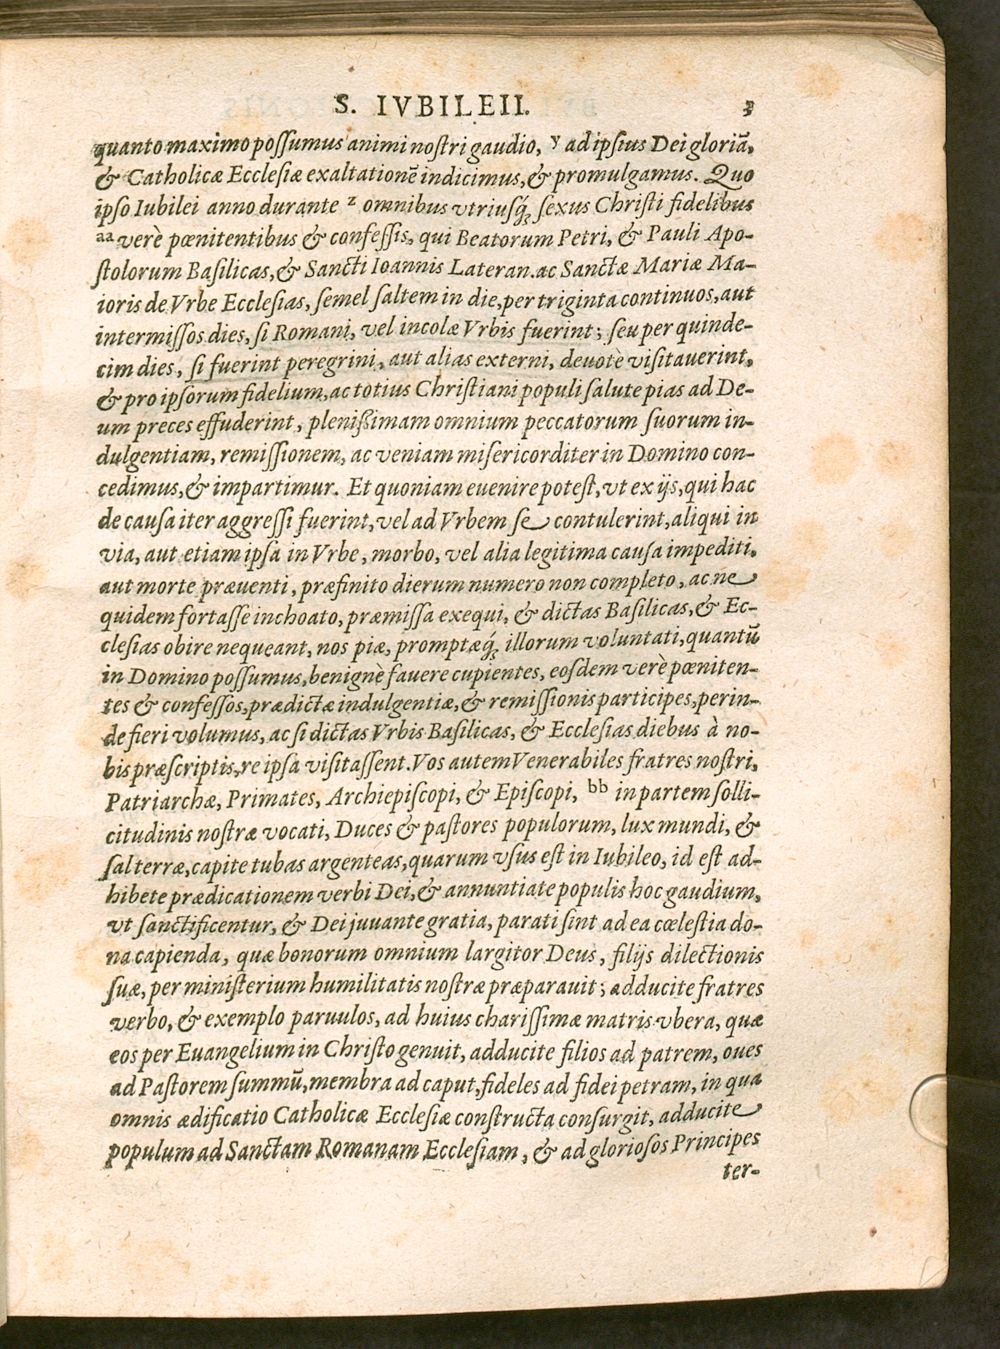 S. IVBILEII. 3
quanto maximo poſſumus animi noſtri gaudio, y ad ipſius Dei gloriã,
& Catholicæ Eccleſiæ exaltationẽ indicimus, & promulgamus. Quo
ipſo Iubilei anno durante z omnibus vtriuſq́; ſexus Chriſti fidelibus
aa verè pœnitentibus & confeſſis, qui Beatorum Petri, & Pauli Apo-
ſtolorum Baſilicas, & Sancti Ioannis Lateran. ac Sanctæ Mariæ Ma-
ioris de Vrbe Eccleſias, ſemel ſaltem in die, per triginta continuos, aut
intermiſſos dies, ſi Romani, vel incolæ Vrbis fuerint; ſeu per quinde-
cim dies, ſi fuerint peregrini, aut alias externi, deuotè viſitauerint,
& pro ipſorum fidelium, ac totius Chriſtiani populi ſalute pias ad De-
um preces effuderint, pleniſſimam omnium peccatorum ſuorum in-
dulgentiam, remiſſionem, ac veniam miſericorditer in Domino con-
cedimus, & impartimur. Et quoniam euenire poteſt, vt ex ijs, qui hac
de cauſa iter aggreſſi fuerint, vel ad Vrbem ſe contulerint, aliqui in
via, aut etiam ipſa in Vrbe, morbo, vel alia legitima cauſa impediti,
aut morte præuenti, præfinito dierum numero non completo, ac ne
quidem fortaſſe inchoato, præmiſſa exequi, & dictas Baſilicas, & Ec-
cleſias obire nequeant, nos piæ, promptæq́; illorum voluntati, quantũ
in Domino poſſumus, benignè fauere cupientes, eoſdem verè pœniten-
tes & confeſſos, prædictæ indulgentiæ, & remiſſionis participes, perin-
de fieri volumus, ac ſi dictas Vrbis Baſilicas, & Eccleſias diebus à no-
bis præſcriptis, re ipſa viſitaſſent. Vos autem Venerabiles fratres noſtri,
Patriarchæ, Primates, Archiepiſcopi, & Epiſcopi, bb in partem ſolli-
citudinis noſtræ vocati, Duces & paſtores populorum, lux mundi, &
ſal terræ, capite tubas argenteas, quarum vſus eſt in Iubileo, id eſt ad-
hibete prædicationem verbi Dei, & annuntiate populis hoc gaudium,
vt ſanctificentur, & Dei juuante gratia, parati ſint ad ea cœleſtia do-
na capienda, quæ bonorum omnium largitor Deus, filijs dilectionis
ſuæ, per miniſterium humilitatis noſtræ præparauit; adducite fratres
verbo, & exemplo paruulos, ad huius chariſſimæ matris vbera, quæ
eos per Euangelium in Chriſto genuit, adducite filios ad patrem, oues
ad Paſtorem ſummũ, membra ad caput, fideles ad fidei petram, in qua
omnis ædificatio Catholicæ Eccleſiæ conſtructa conſurgit, adducite
populum ad Sanctam Romanam Eccleſiam, & ad glorioſos Principes
ter-